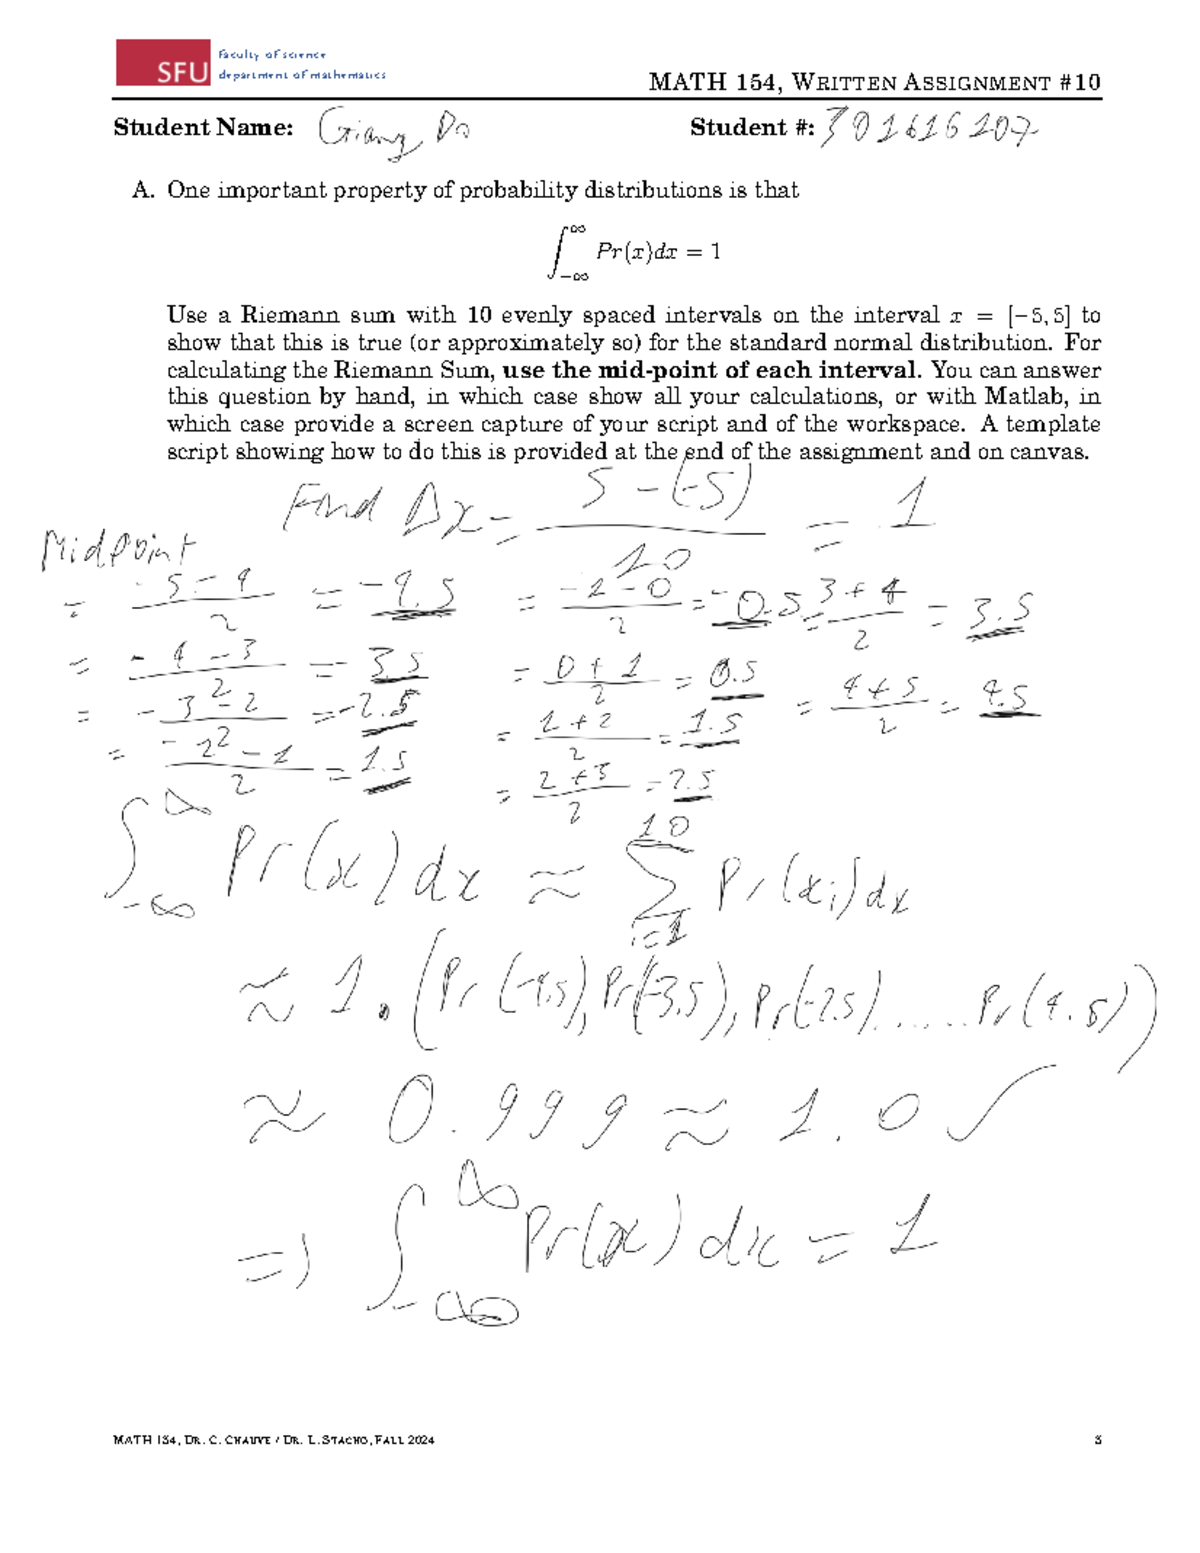 SFU
Faculty of science
department of mathematics
MATH 154, WRITTEN ASSIGNMENT #10
Student Name: Giang Do
Student #: 301616107
A. One important property of probability distributions is that
∫_{-∞}^{∞} Pr(x)dx = 1
Use a Riemann sum with 10 evenly spaced intervals on the interval x = [−5, 5] to
show that this is true (or approximately so) for the standard normal distribution. For
calculating the Riemann Sum, use the mid-point of each interval. You can answer
this question by hand, in which case show all your calculations, or with Matlab, in
which case provide a screen capture of your script and of the workspace. A template
script showing how to do this is provided at the end of the assignment and on canvas.
Find Δx = (5 - (-5))/10 = 1
Midpoint
= (-5 - 4)/2 = -4.5
= (-4 - 3)/2 = 3.5
= (-3 - 2)/2 = -2.5
= (-2 - 1)/2 = 1.5
= (-1 - 0)/2 = -0.5
= (0 + 1)/2 = 0.5
= (1 + 2)/2 = 1.5
= (2 + 3)/2 = 2.5
= (3 + 4)/2 = 3.5
= (4 + 5)/2 = 4.5
∫_{-∞}^{∞} Pr(x) dx ≈ ∑_{i=1}^{10} Pr(xi) dx
≈ 1 . (Pr(-4.5), Pr(-3.5), Pr(-2.5) ...... Pr(4.5))
≈ 0.999 ≈ 1.0 ✓
=> ∫_{-∞}^{∞} Pr(x) dx = 1
MATH 154, DR. C. CHAUVE / DR. L. STACHO, FALL 2024
3